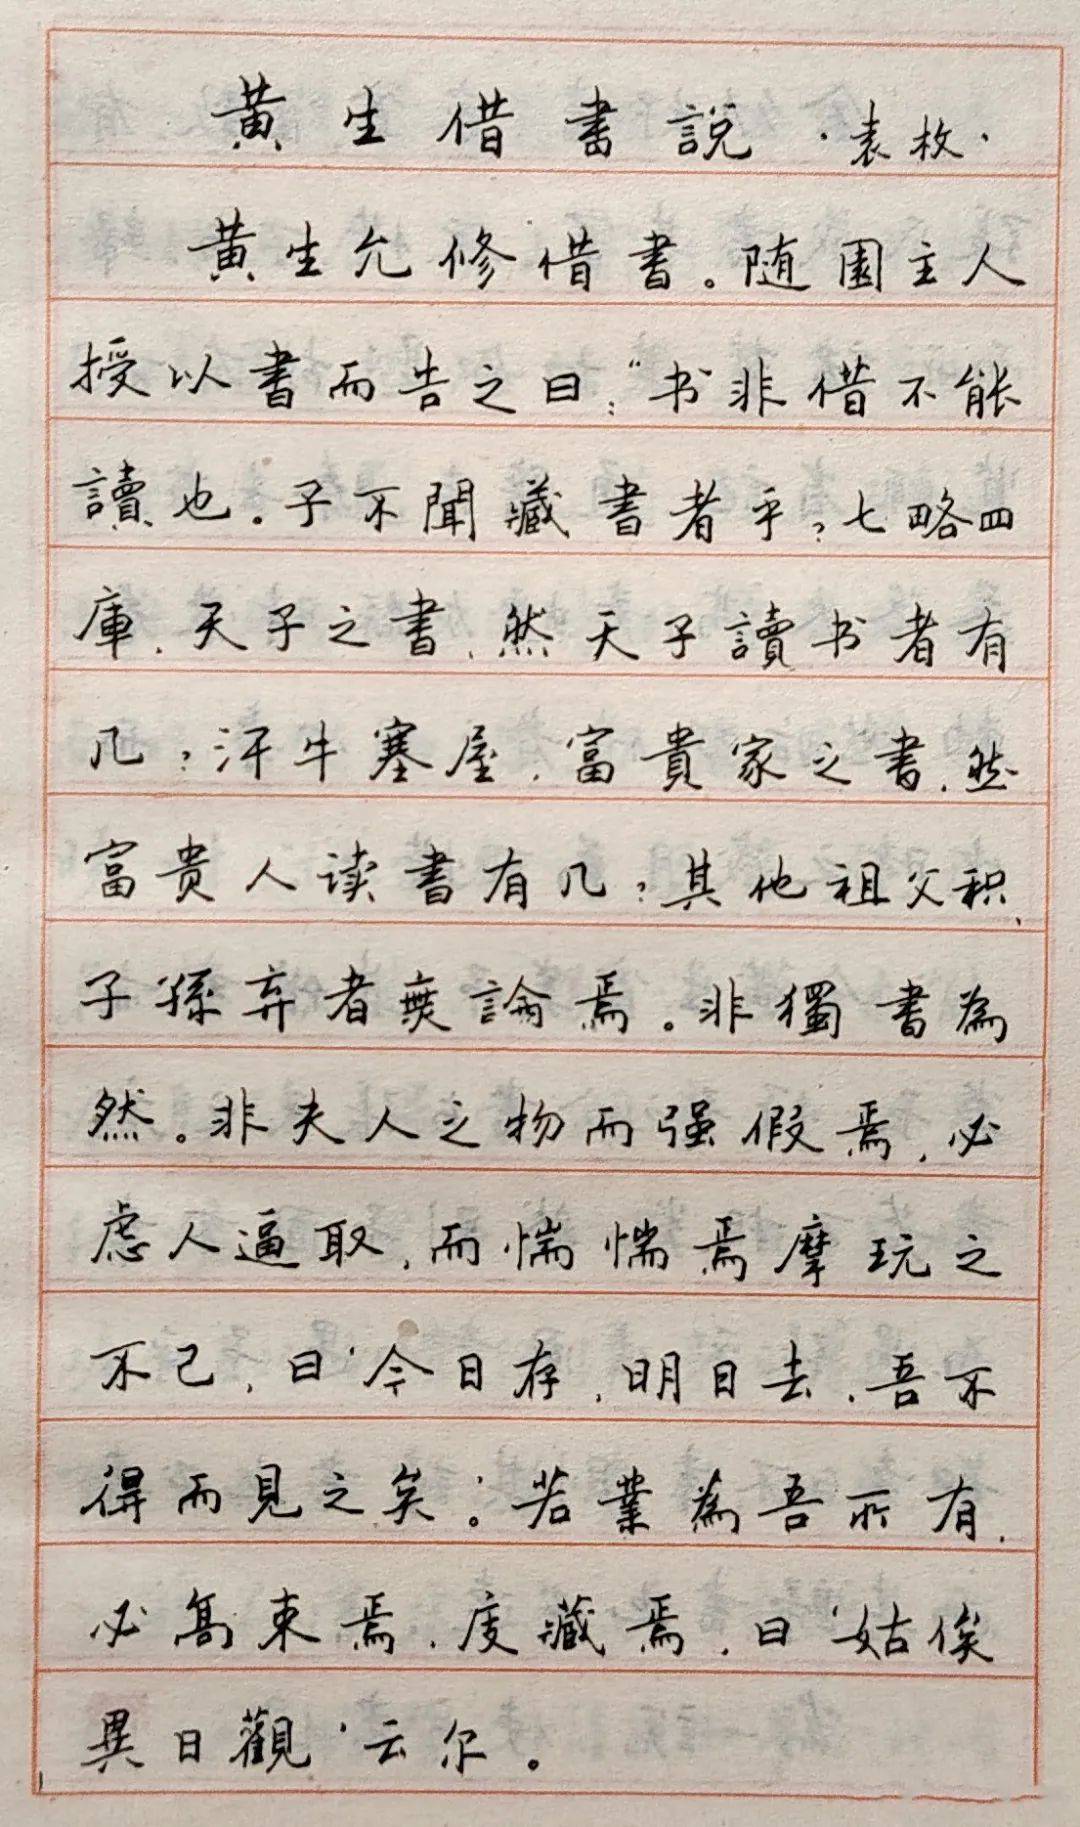 黄生借書説 ·袁枚·
黄生允修借書。随園主人
授以書而告之曰：“书非借不能
讀也。子不聞藏書者乎？七略四
庫，天子之書，然天子讀书者有
几？汗牛塞屋，富貴家之書，然
富贵人读書有几？其他祖父积，
子孫弃者無論焉。非獨書為
然。非夫人之物而强假焉，必
虑人逼取，而惴惴焉摩玩之
不已，曰‘今日存，明日去，吾不
得而見之矣。’若業為吾所有，
必髙束焉，庋藏焉，曰‘姑俟
異日觀’云尔。